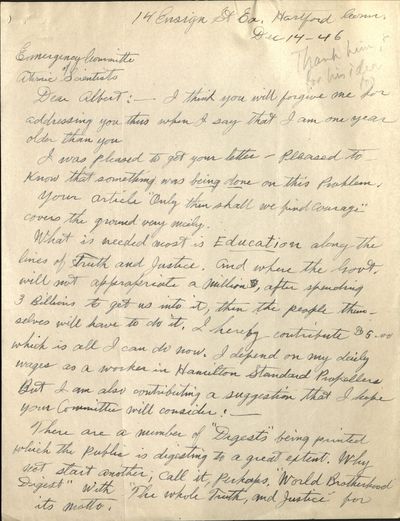 14 Ensign St Ea. Hartford Conn.
Dec 14-46
Thank him
for his idea
Emergency Committe
of
Atomic Scientists
Dear Albert:— I think you will forgive me for
addressing you thus when I say that I am one year
older than you
I was pleased to get your letter — Pleased to
know that something was being done on this Problem.
Your article "Only then shall we find Courage"
covers the ground very nicely.
What is needed most is Education along the
lines of Truth and Justice. And where the Govt.
will not apperapreriate a Million $, after spending
3 Billions to get us into it, then the people them-
selves will have to do it. I hereby contribute $5.00
which is all I can do now. I depend on my daily
wages as a worker in Hamilton Standard Propellers
But I am also contributing a suggestion that I hope
your Committee will consider:—
There are a number of "Digests" being printed
which the Public is digesting to a great extent. Why
not start another, Call it, Perhaps, "World Brotherhood
Digest" With "The whole Truth, and Justice" for
its motto.